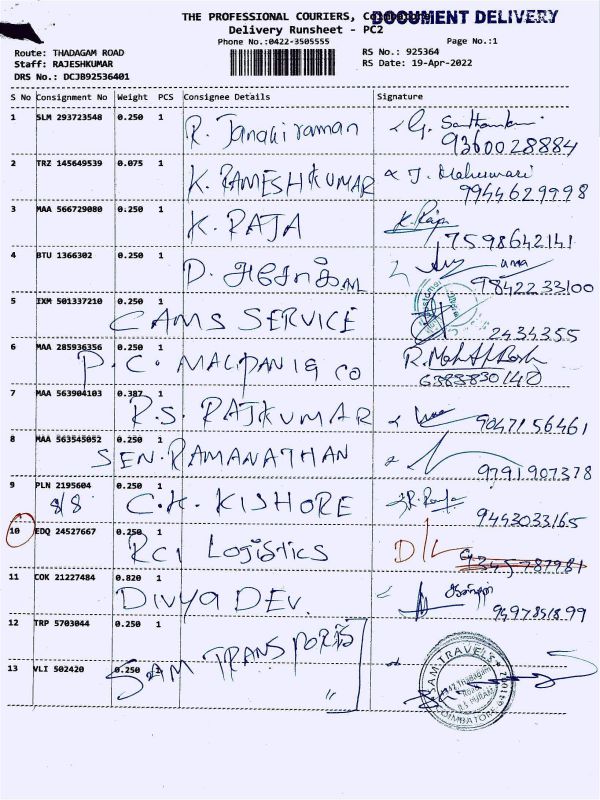 THE PROFESSIONAL COURIERS, Coimbatore
DOCUMENT DELIVERY
Delivery Runsheet - PC2
Phone No.:0422-3505555
Page No.:1
Route: THADAGAM ROAD
RS No.: 925364
Staff: RAJESHKUMAR
RS Date: 19-Apr-2022
DRS No.: DCJB92536401
S No Consignment No Weight PCS Consignee Details Signature
1 SLM 293723548 0.250 1 R. Janakiraman
9360028884
2 TRZ 145649539 0.075 1 K. RAMESHKUMAR J. Maheswari
9944629998
3 MAA 566729080 0.250 1 K. RAJA K. Raja
7598642141
4 BTU 1366302 0.250 1 D. அசோக் uma
9842233100
5 IXM 501337210 0.250 1 CAMS SERVICE
2434355
6 MAA 285936356 0.250 1 P.C. MALIPANI & CO
6383830140
7 MAA 563904103 0.387 1 R.S. RAJKUMAR 9047156461
8 MAA 563545052 0.250 1 SEN. RAMANATHAN
9791907378
9 PLN 2195604 0.250 1 C.K. KISHORE
8/8 9443033165
10 EDQ 24527667 0.250 1 RCI Logistics D/L
11 COK 21227484 0.820 1 DIVYA DEV.
12 TRP 5703044 0.250 1 SAM TRANSPORTS
13 VLI 502420 0.250 1 "
SAM TRAVELS
R.S. PURAM
COIMBATORE